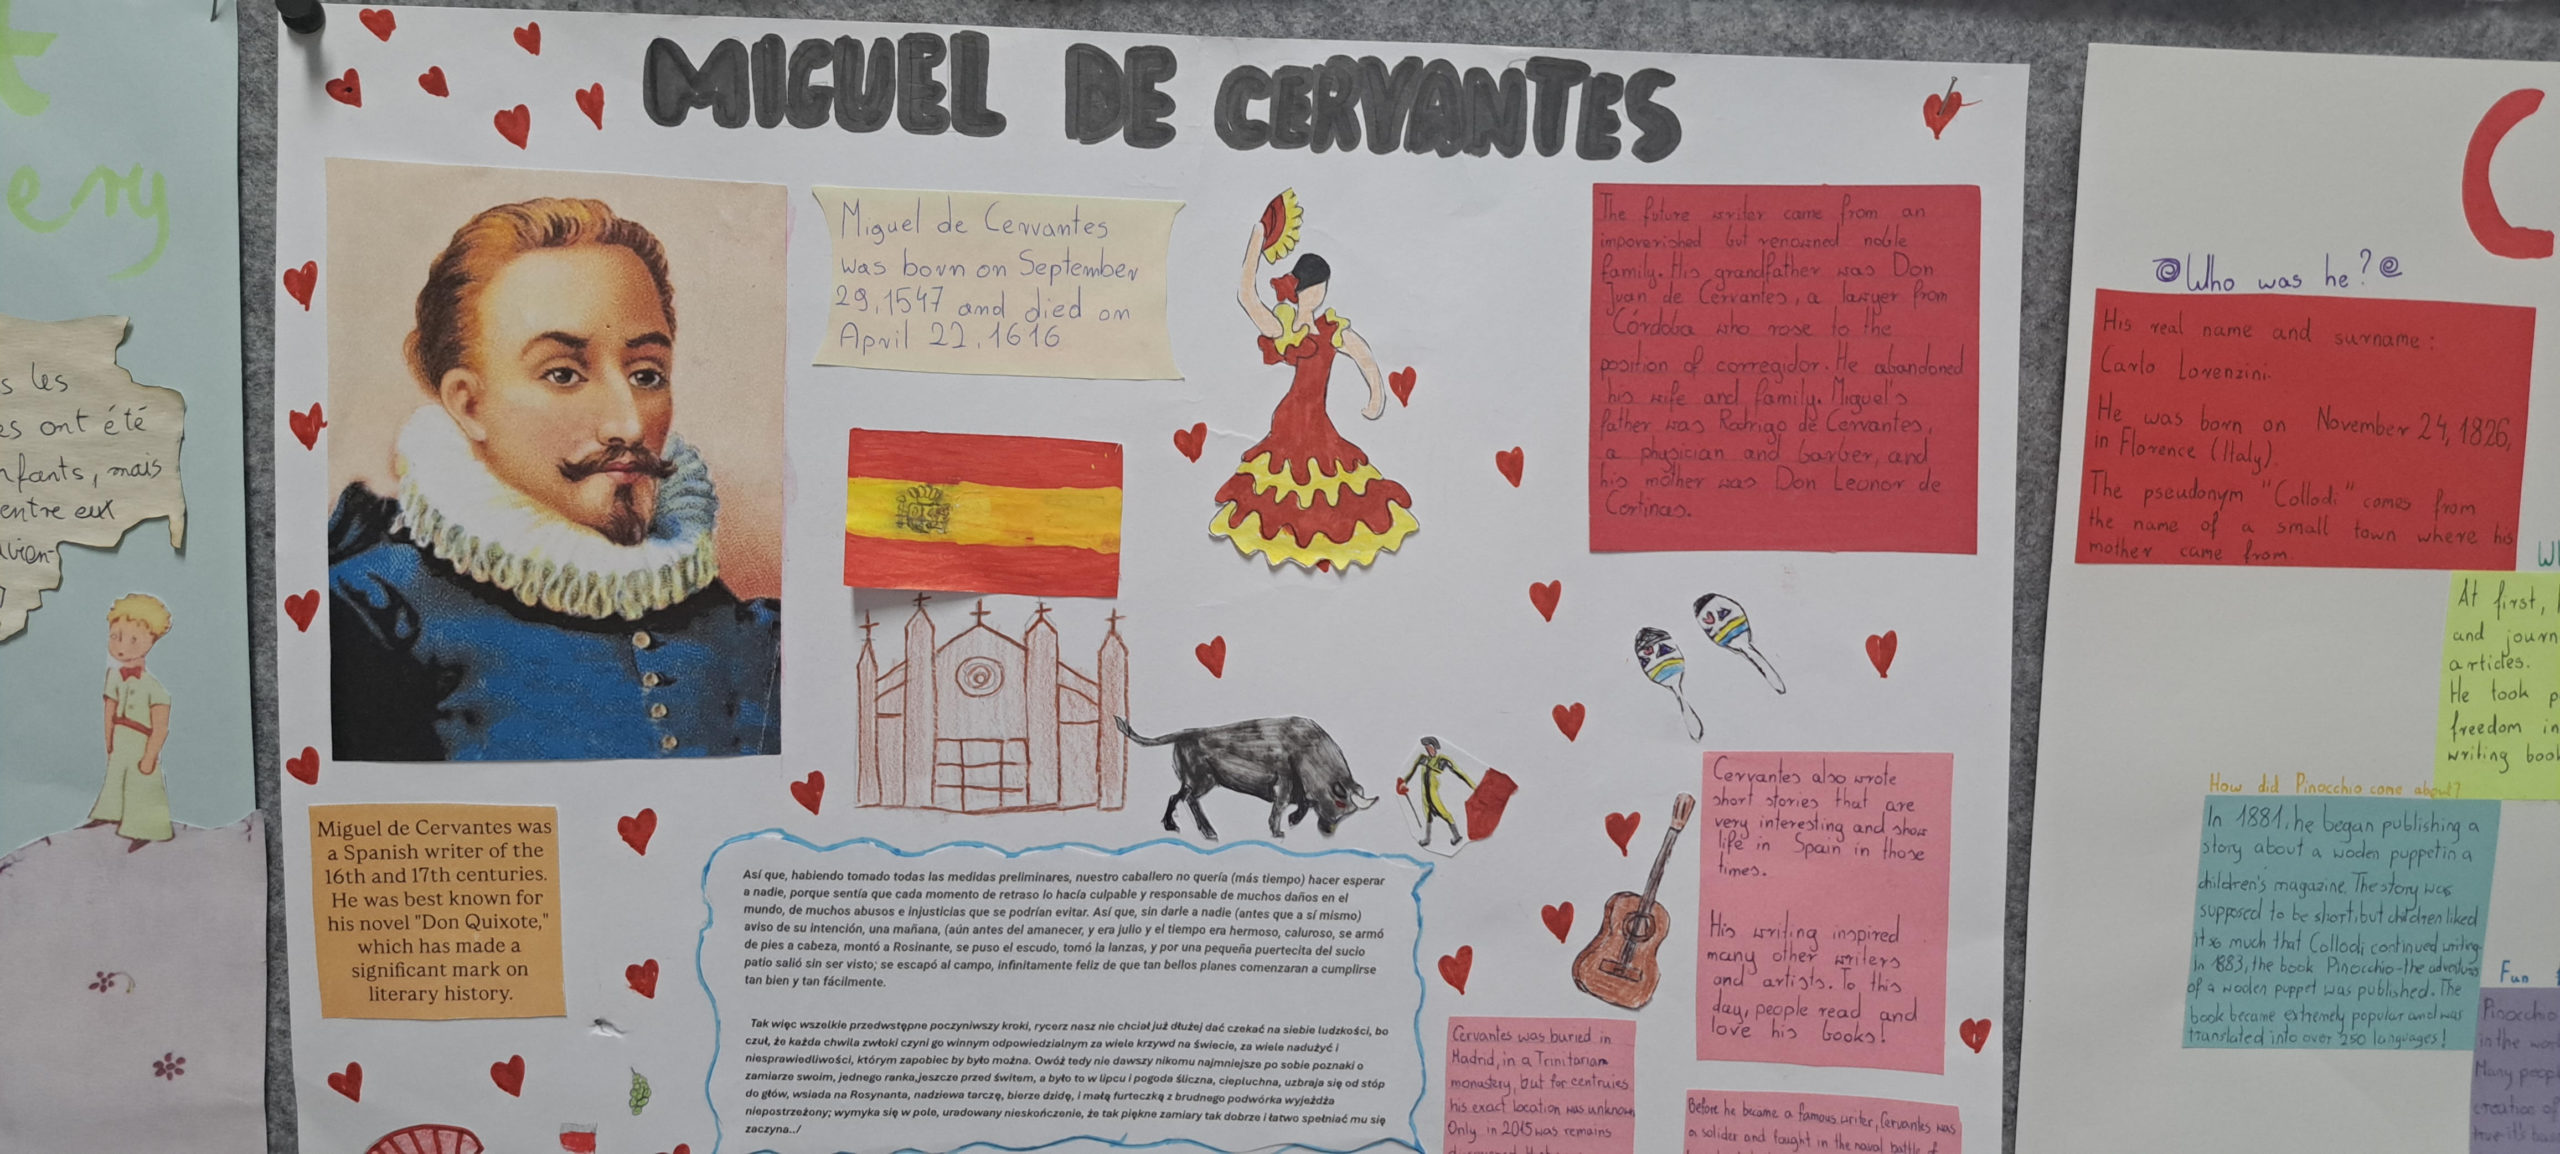 t
ery
s les
es ont été
nfants, mais
entre eux
MIGUEL DE CERVANTES
Miguel de Cervantes
was born on September
29, 1547 and died on
April 22, 1616
The future writer came from an
impoverished but renowned noble
family. His grandfather was Don
Juan de Cervantes, a lawyer from
Córdoba who rose to the
position of corregidor. He abandoned
his wife and family. Miguel's
father was Rodrigo de Cervantes,
a physician and barber, and
his mother was Don Leonor de
Cortinas.
Miguel de Cervantes was
a Spanish writer of the
16th and 17th centuries.
He was best known for
his novel "Don Quixote,"
which has made a
significant mark on
literary history.
Así que, habiendo tomado todas las medidas preliminares, nuestro caballero no quería (más tiempo) hacer esperar
a nadie, porque sentía que cada momento de retraso lo hacía culpable y responsable de muchos daños en el
mundo, de muchos abusos e injusticias que se podrían evitar. Así que, sin darle a nadie (antes que a sí mismo)
aviso de su intención, una mañana, (aún antes del amanecer, y era julio y el tiempo era hermoso, caluroso, se armó
de pies a cabeza, montó a Rosinante, se puso el escudo, tomó la lanzas, y por una pequeña puertecita del sucio
patio salió sin ser visto; se escapó al campo, infinitamente feliz de que tan bellos planes comenzaran a cumplirse
tan bien y tan fácilmente.
Tak więc wszelkie przedwstępne poczyniwszy kroki, rycerz nasz nie chciał już dłużej dać czekać na siebie ludzkości, bo
czuł, że każda chwila zwłoki czyni go winnym odpowiedzialnym za wiele krzywd na świecie, za wiele nadużyć i
niesprawiedliwości, którym zapobiec by było można. Owóż tedy nie dawszy nikomu najmniejsze po sobie poznaki o
zamiarze swoim, jednego ranka,jeszcze przed świtem, a było to w lipcu i pogoda śliczna, ciepluchna, uzbraja się od stóp
do głów, wsiada na Rosynanta, nadziewa tarczę, bierze dzidę, i małą furteczką z brudnego podwórka wyjeżdża
niepostrzeżony; wymyka się w pole, uradowany nieskończenie, że tak piękne zamiary tak dobrze i łatwo spełniać mu się
zaczyna../
Cervantes also wrote
short stories that are
very interesting and show
life in Spain in those
times.
His writing inspired
many other writers
and artists. To this
day, people read and
love his books!
Cervantes was buried in
Madrid, in a Trinitarian
monastery, but for centruies
his exact location was unknown
Only in 2015 was remains
Before he became a famous writer, Cervantes was
a solider and fought in the naval battle of
C
Who was he?
His real name and surname:
Carlo Lorenzini.
He was born on November 24, 1826,
in Florence (Italy).
The pseudonym "Collodi" comes from
the name of a small town where his
mother came from.
At first,
and journ
articles.
He took p
freedom in
writing book
How did Pinocchio come about?
In 1881, he began publishing a
story about a woden puppet in a
children's magazine. The story was
supposed to be short, but children liked
it so much that Collodi continued writing
In 1883, the book Pinocchio-the adventures
of a woden puppet was published. The
book became extremely popular and was
translated into over 250 languages!
Fun
Pinocchio
in the wor
Many peopl
creation of
true it's bas